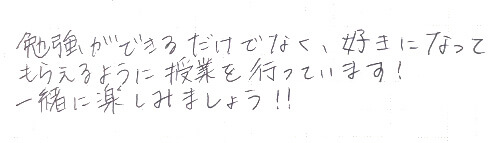 勉強ができるだけでなく、好きになって
もらえるように授業を行っています!
一緒に楽しみましょう!!